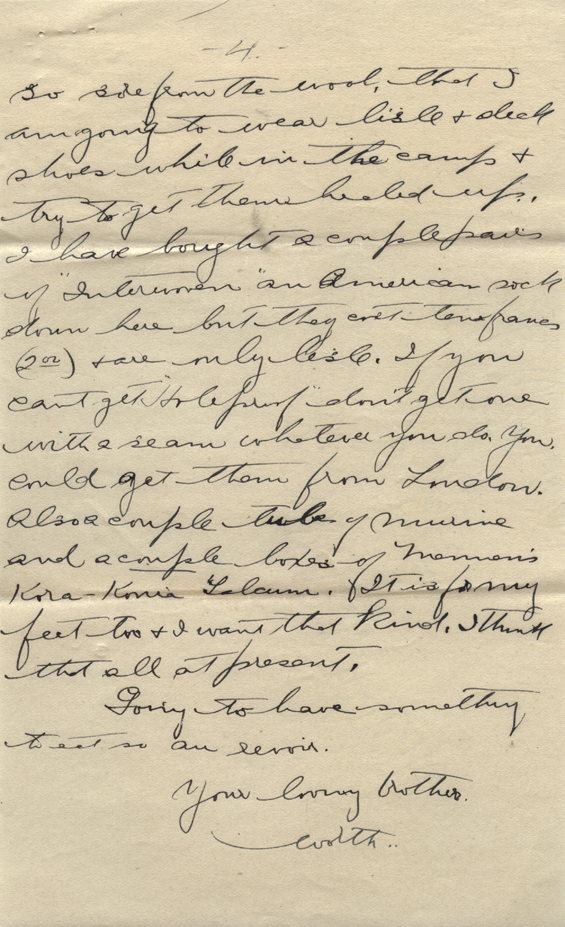 - 4. -
so sore from the wool, that I
am going to wear lisle & deck
shoes while in the camp &
try to get them healed up.
I have bought a couple pairs
of "Interwoven" an American sock
down here but they cost ten francs
(2 00) & are only lisle. If you
can't get "Holeproof" don't get one
with a seam whatever you do. You
could get them from London.
Also a couple tubes of Murine
and a couple boxes of Mennen's
Kora-Konia Talcum. (It is for my
feet too & I want that kind. I think
that all at present.
Going to have something
to eat so au revoir.
Your loving brother.
Worth..